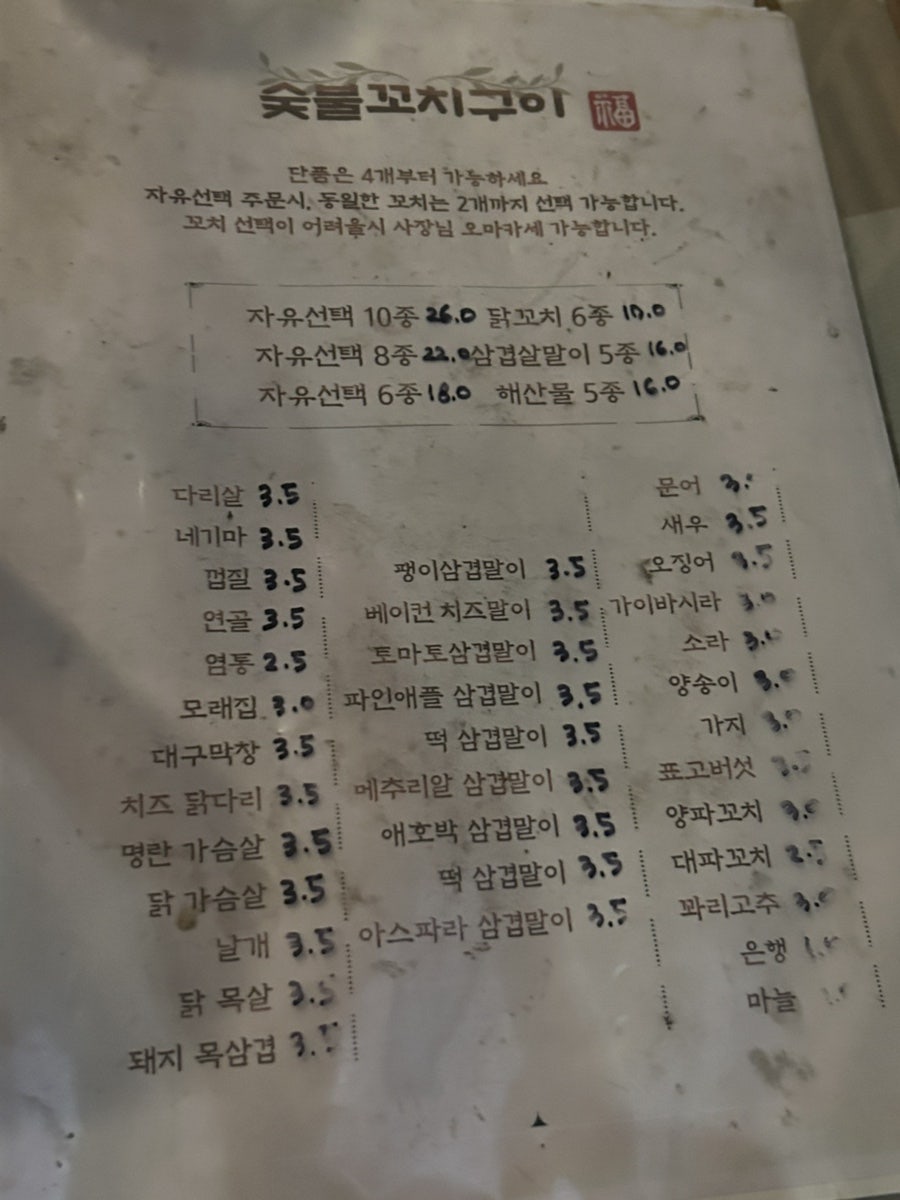 숯불꼬치구이 福
단품은 4개부터 가능하세요
자유선택 주문시, 동일한 꼬치는 2개까지 선택 가능합니다.
꼬치 선택이 어려울시 사장님 오마카세 가능합니다.
자유선택 10종 26.0 닭꼬치 6종
자유선택 8종 22.0 삼겹살말이 5종 16.0
자유선택 6종 18.0 해산물 5종 16.0
다리살 3.5
네기마 3.5
껍질 3.5
연골 3.5
염통 2.5
모래집 3.0
대구막창 3.5
치즈 닭다리 3.5
명란 가슴살 3.5
닭 가슴살 3.5
날개 3.5
닭 목살 3.5
돼지 목삼겹
팽이삼겹말이 3.5
베이컨 치즈말이 3.5
토마토삼겹말이 3.5
파인애플 삼겹말이 3.5
떡 삼겹말이 3.5
메추리알 삼겹말이 3.5
애호박 삼겹말이 3.5
떡 삼겹말이 3.5
아스파라 삼겹말이 3.5
문어
새우 3.5
오징어 3.5
가이바시라 3.0
소라
양송이 3.0
가지
표고버섯
양파꼬치
대파꼬치
꽈리고추
은행
마늘